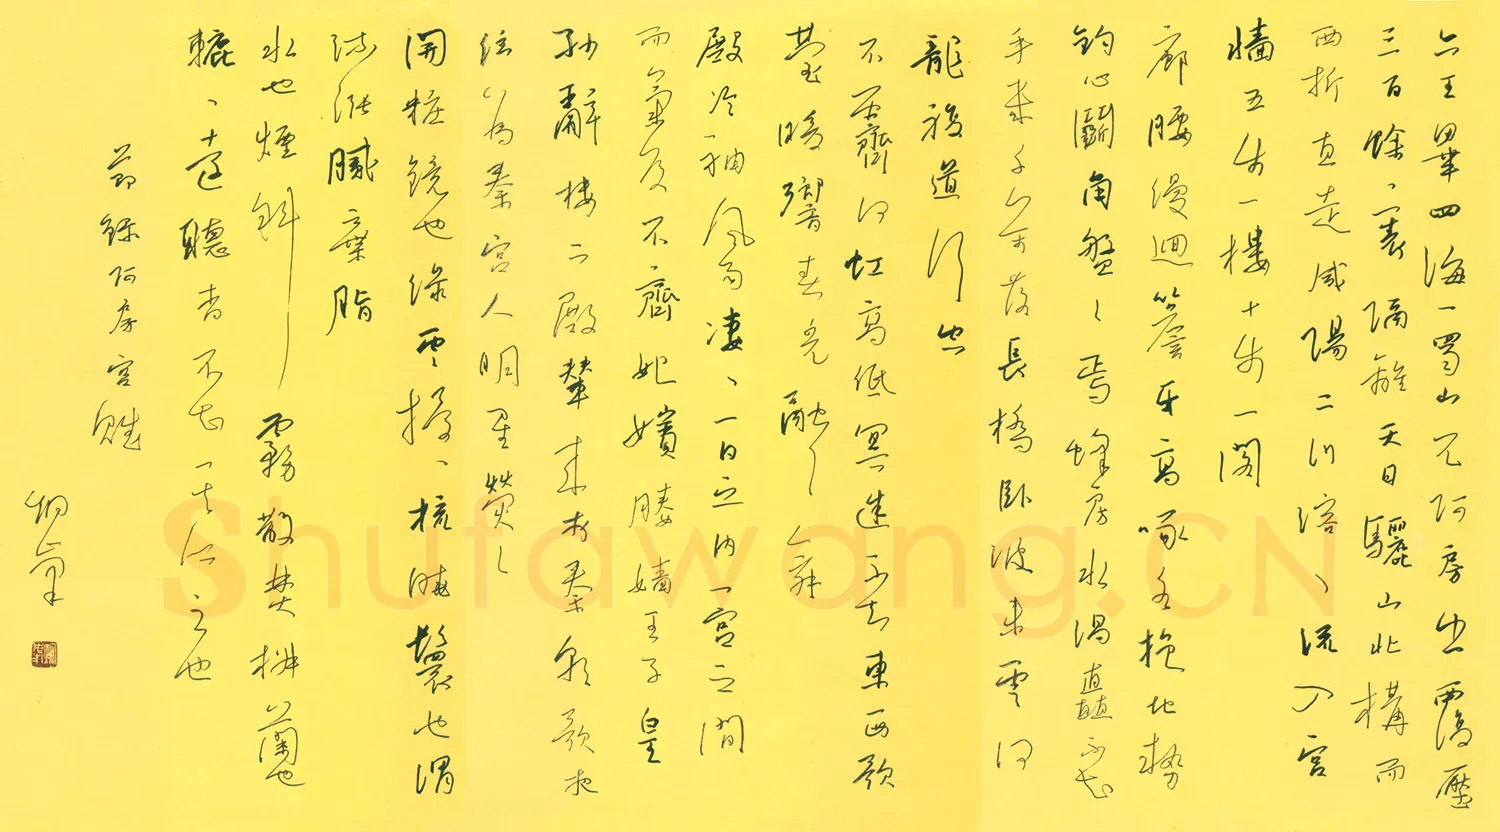 六王畢四海一蜀山兀阿房出覆壓
三百餘裏隔離天日驪山北構而
西折直走咸陽二川溶、流入宮
牆五步一樓十步一閣
廊腰縵迴簷牙高啄各抱地勢
鈎心鬭角盤、焉蜂房水渦矗不知
乎幾千萬落長橋臥波未雲何
龍複道行空
不霽何虹高低冥迷不知東西歌
臺暖響春光融、舞
殿冷袖風雨凄、一日之內一宮之間
而氣候不齊妃嬪媵嬙王子皇
孫辭樓下殿輦來於秦朝歌夜
弦為秦宮人明星熒、
開粧鏡也綠雲擾、梳曉鬟也渭
流漲膩棄脂
水也煙斜霧散焚椒蘭也
轆、遠聽杳不知其所之也
節錄阿房宮賦
Shufawang.CN